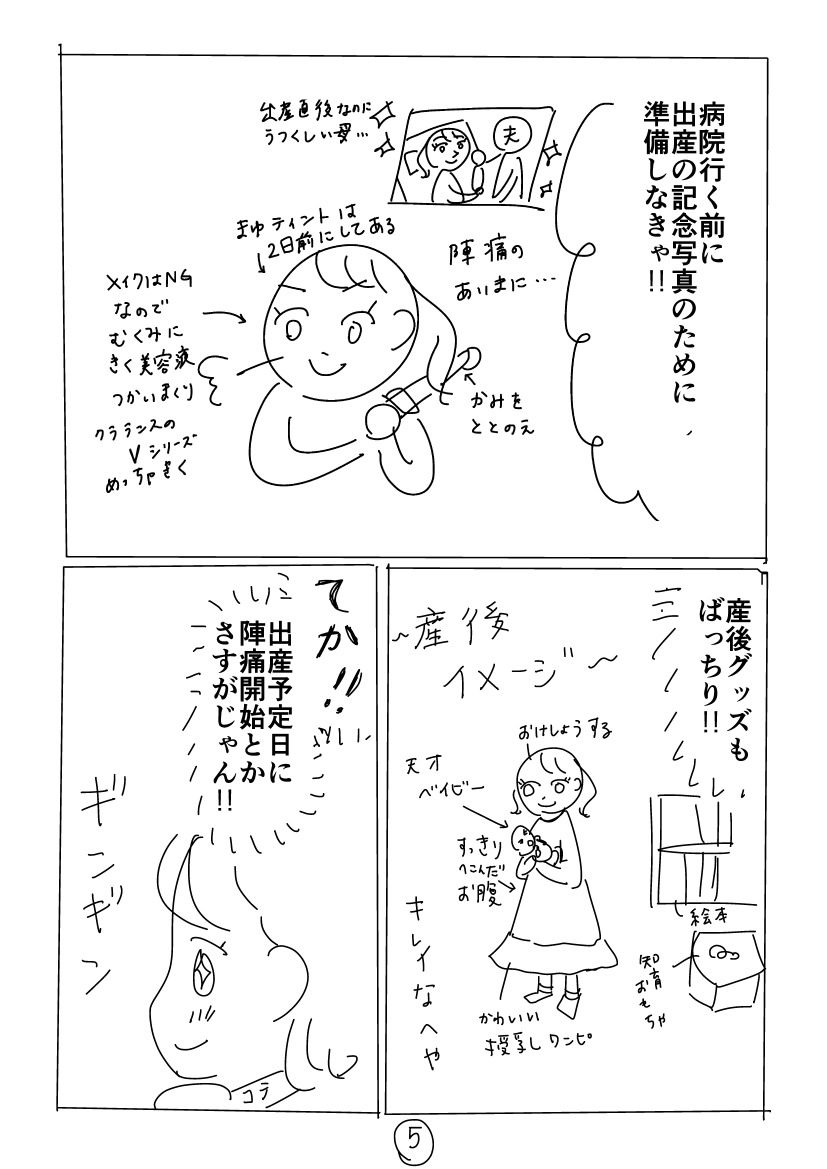 病院行く前に
出産の記念写真のために
準備しなきゃ!!
出産直後なのに
うつくしい愛…
夫
陣痛の
あいまに…
まゆティントは
2日前にしてある
メイクはNG
なので
むくみに
きく美容液
つかいまくり
クラランスの
Vシリーズ
めっちゃきく
かみを
ととのえ
産後グッズも
ばっちり!!
~産後
イメージ~
おけしょうする
天才
ベイビー
すっきり
へこんだ
お腹
キレイなへや
かわいい
授乳しワンピ
絵本
知育おもちゃ
てか!!
出産予定日に
陣痛開始とか
さすがじゃん!!
ギンギン
コテ
5